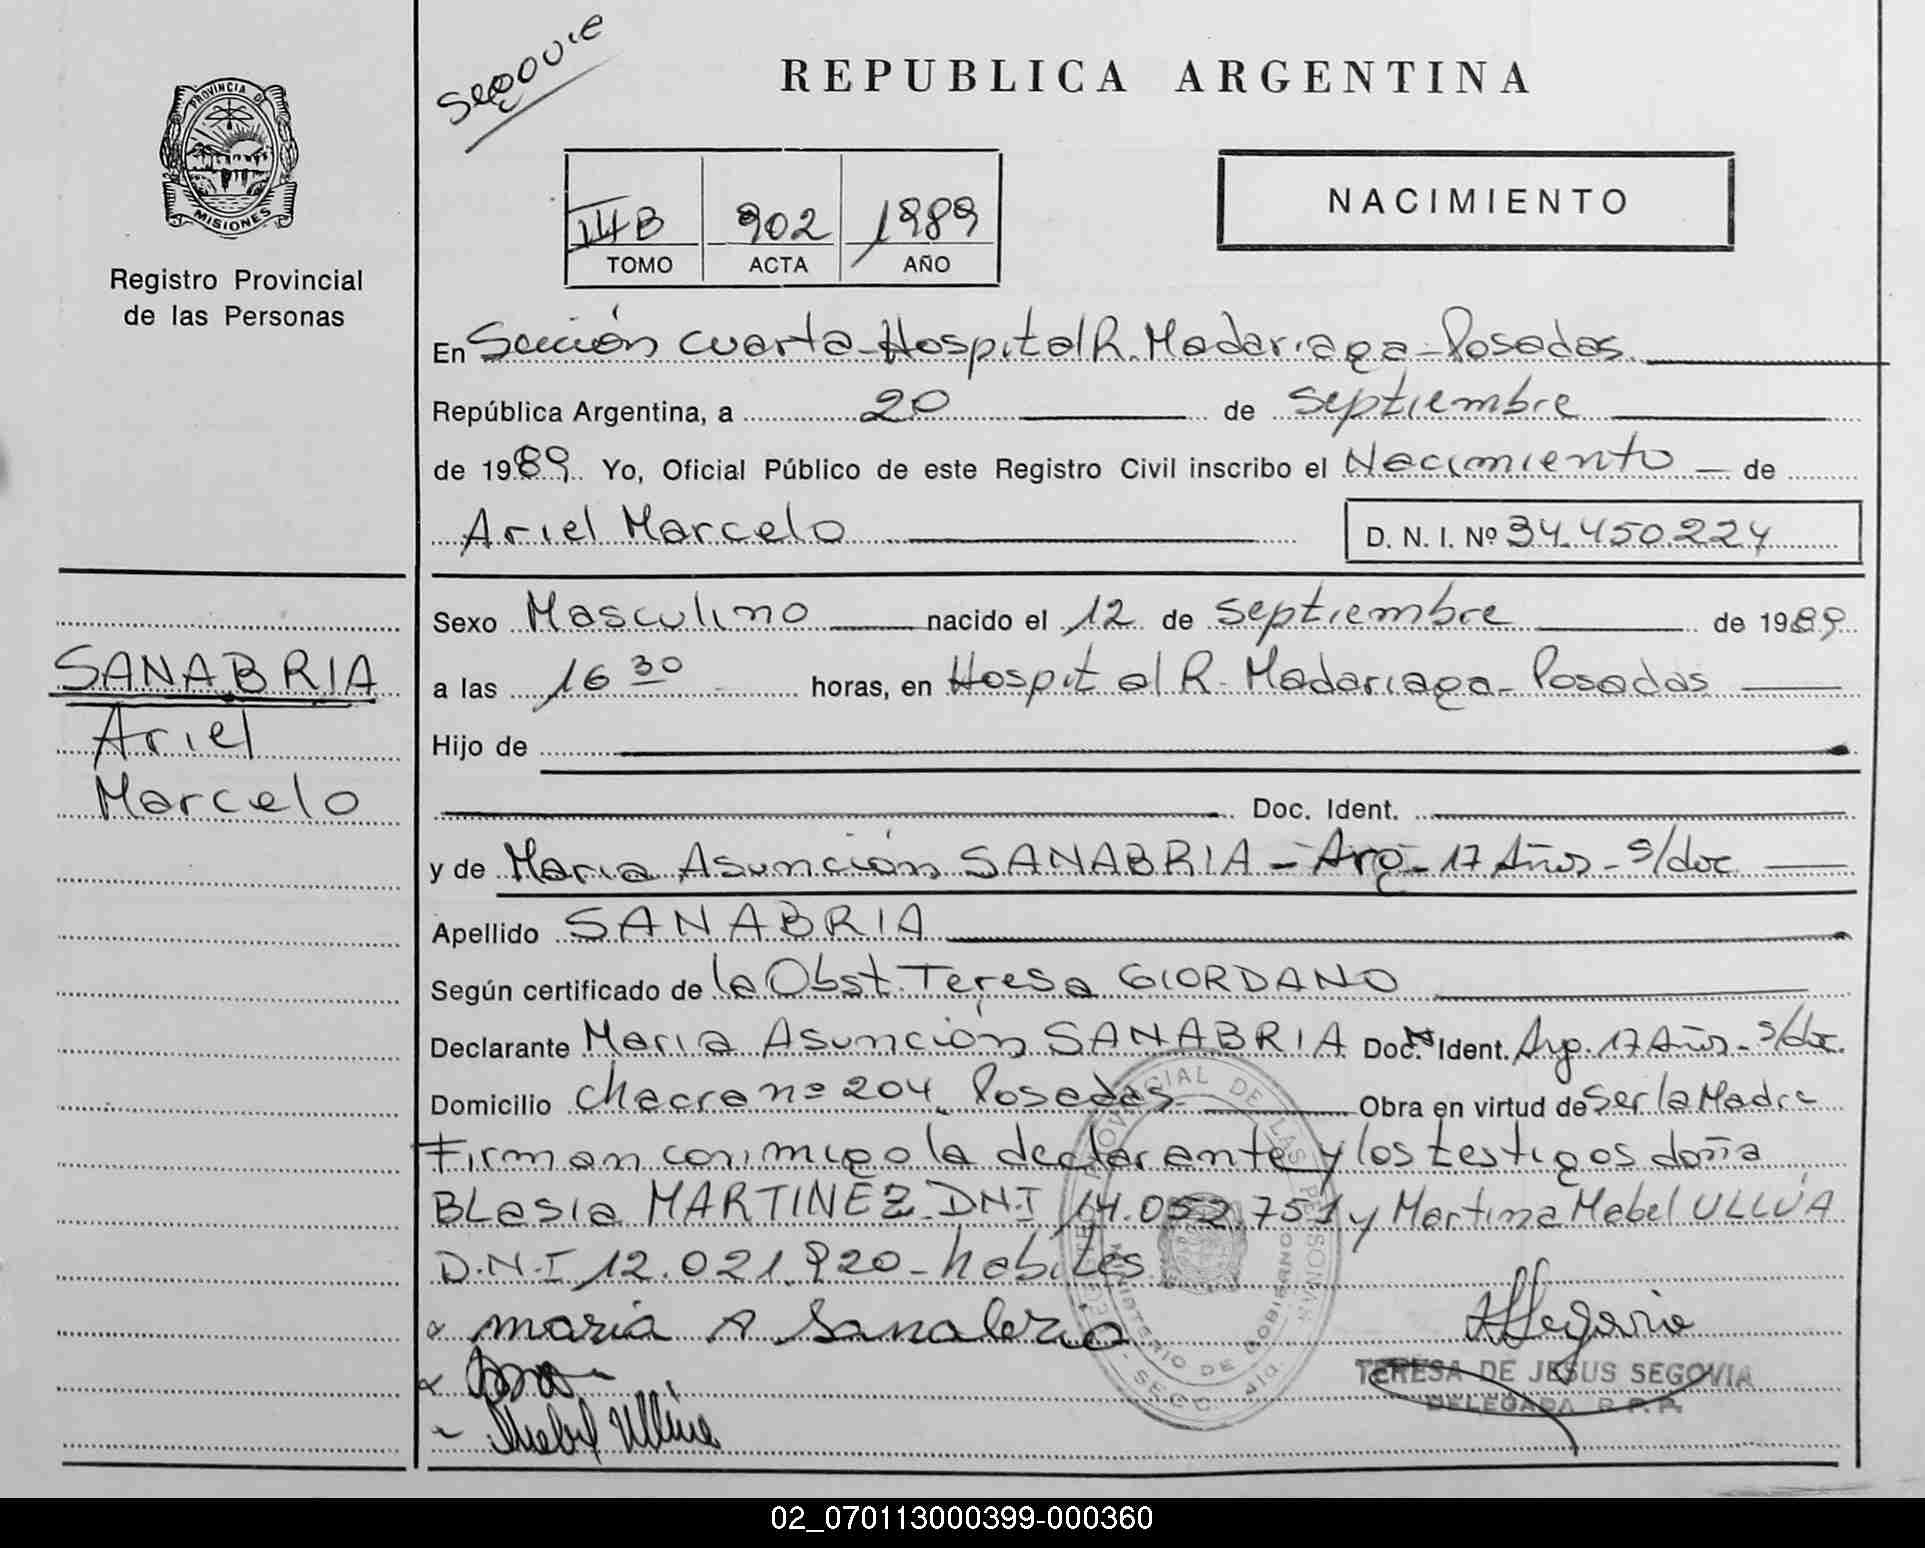 Segovie
REPUBLICA ARGENTINA
PROVINCIA DE
MISIONES
Registro Provincial
de las Personas
III B 902 1989
TOMO ACTA AÑO
NACIMIENTO
En Sección cuarta - Hospital R. Madariaga - Posadas
República Argentina, a 20 de septiembre
de 1989. Yo, Oficial Público de este Registro Civil inscribo el Nacimiento de
Ariel Marcelo
D. N. I. Nº 34.450.224
Sexo Masculino nacido el 12 de septiembre de 1989
a las 16 30 horas, en Hospital R. Madariaga - Posadas
Hijo de
Doc. Ident.
y de Maria Asunción SANABRIA - Arg - 17 Años - s/doc
Apellido SANABRIA
Según certificado de la Obst. Teresa GIORDANO
Declarante Maria Asunción SANABRIA Doc. Ident. Arg. 17 Años - s/doc.
Domicilio chacra nº 204 Posadas Obra en virtud de Ser la Madre
Firman conmigo la declarante y los testigos doña
BLasia MARTINEZ D.N.I 14.052.751 y Martina Mabel ULLÚA
D.N.I 12.021.920 - habiles
SANABRIA
Ariel
Marcelo
maria A Sanabria
Mabel Ullua
Segovia
TERESA DE JESUS SEGOVIA
DELEGADA R. P. P.
PROVINCIAL DE LAS PERSONAS
MINISTERIO DE GOBIERNO
02_070113000399-000360